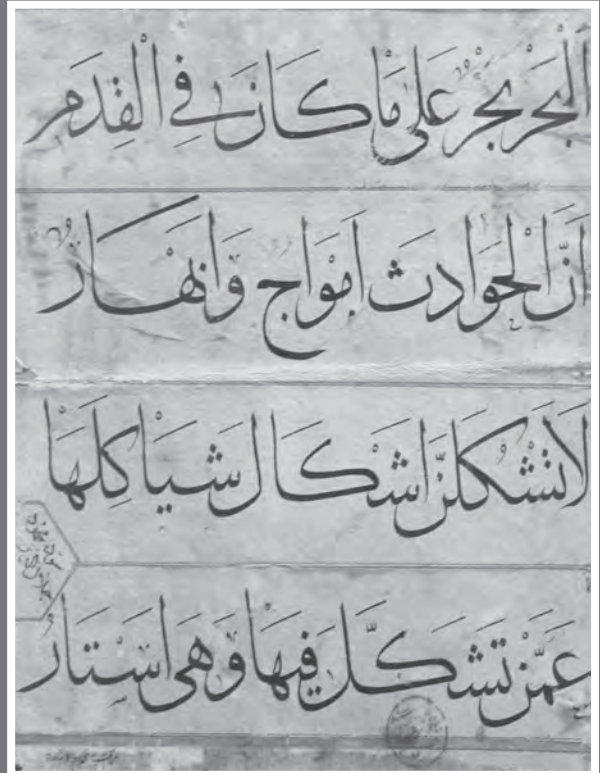 اَلْبَحْرُ بَحْرٌ عَلٰى مَا كَانَ فِي الْقِدَمِ
اَنَّ الْحَوَادِثَ اَمْوَاجٌ وَاَنْهَارٌ
لَا تشْكلَنَّ اَشْكَال شَيَاكِلهَا
عَمَّنْ تَشَكَّلَ فِيهَا وَهِيَ اَسْتَار